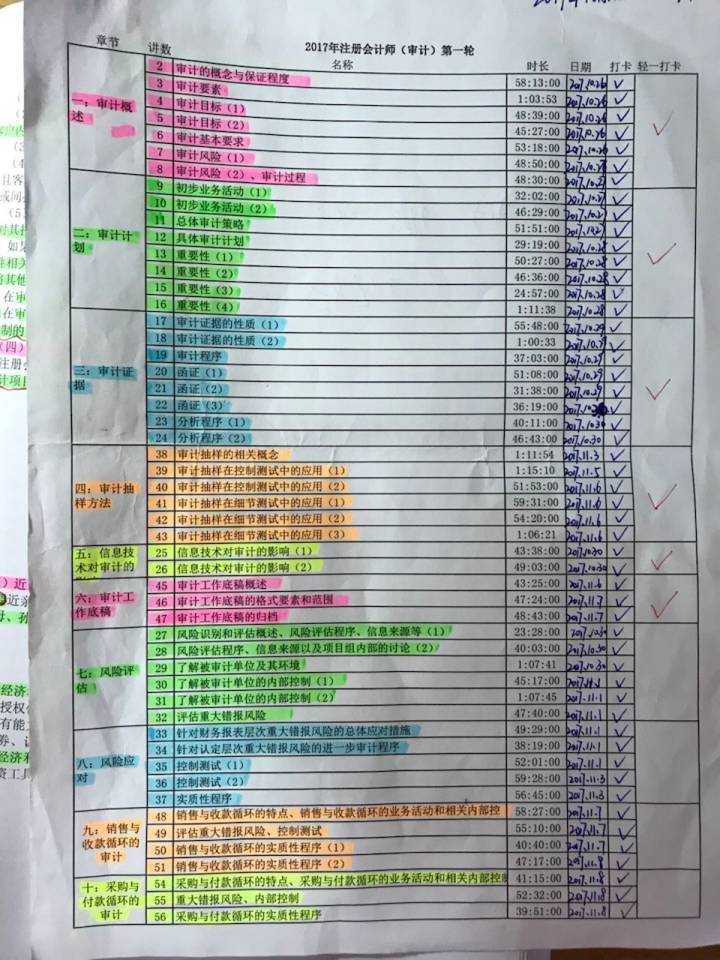 2017年注册会计师（审计）第一轮
章节 讲数 名称 时长 日期 打卡 轻一打卡
一：审计概述
2 审计的概念与保证程度 58:13:00 2017.10.26 ✓
3 审计要素 1:03:53 2017.10.26 ✓
4 审计目标（1） 48:39:00 2017.10.26 ✓
5 审计目标（2） 45:27:00 2017.10.26 ✓
6 审计基本要求 53:18:00 2017.10.26 ✓
7 审计风险（1） 48:50:00 2017.10.27 ✓
8 审计风险（2）、审计过程 48:30:00 2017.10.27 ✓
二：审计计划
9 初步业务活动（1） 32:02:00 2017.10.27 ✓
10 初步业务活动（2） 46:29:00 2017.10.27 ✓
11 总体审计策略 51:51:00 ✓
12 具体审计计划 29:19:00 2017.10.28 ✓
13 重要性（1） 50:27:00 2017.10.28 ✓
14 重要性（2） 46:36:00 2017.10.28 ✓
15 重要性（3） 24:57:00 2017.10.28 ✓
16 重要性（4） 1:11:38 2017.10.28 ✓
三：审计证据
17 审计证据的性质（1） 55:48:00 2017.10.29 ✓
18 审计证据的性质（2） 1:00:33 2017.10.29 ✓
19 审计程序 37:03:00 2017.10.29 ✓
20 函证（1） 51:08:00 2017.10.29 ✓
21 函证（2） 31:38:00 2017.10.29 ✓
22 函证（3） 36:19:00 ✓
23 分析程序（1） 40:11:00 2017.10.30 ✓
24 分析程序（2） 46:43:00 2017.10.30 ✓
四：审计抽样方法
38 审计抽样的相关概念 1:11:54 2017.11.3 ✓
39 审计抽样在控制测试中的应用（1） 1:15:10 2017.11.5 ✓
40 审计抽样在控制测试中的应用（2） 51:53:00 2017.11.6 ✓
41 审计抽样在细节测试中的应用（1） 59:31:00 2017.11.6 ✓
42 审计抽样在细节测试中的应用（2） 54:20:00 2017.11.6 ✓
43 审计抽样在细节测试中的应用（3） 1:06:21 2017.11.6 ✓
五：信息技术对审计的
25 信息技术对审计的影响（1） 43:38:00 2017.10.30 ✓
26 信息技术对审计的影响（2） 49:03:00 2017.10.30 ✓
六：审计工作底稿
45 审计工作底稿概述 43:25:00 2017.11.6 ✓
46 审计工作底稿的格式要素和范围 47:24:00 2017.11.7 ✓
47 审计工作底稿的归档 48:43:00 2017.11.7 ✓
七：风险评估
27 风险识别和评估概述、风险评估程序、信息来源等（1） 23:28:00 2017.10.30 ✓
28 风险评估程序、信息来源以及项目组内部的讨论（2） 40:03:00 2017.10.30 ✓
29 了解被审计单位及其环境 1:07:41 2017.10.30 ✓
30 了解被审计单位的内部控制（1） 45:17:00 2017.11.1 ✓
31 了解被审计单位的内部控制（2） 1:07:45 2017.11.1 ✓
32 评估重大错报风险 47:40:00 2017.11.1 ✓
八：风险应对
33 针对财务报表层次重大错报风险的总体应对措施 49:29:00 2017.11.1 ✓
34 针对认定层次重大错报风险的进一步审计程序 38:19:00 2017.11.1 ✓
35 控制测试（1） 52:01:00 2017.11.1 ✓
36 控制测试（2） 59:28:00 2017.11.3 ✓
37 实质性程序 56:45:00 2017.11.3 ✓
九：销售与收款循环的审计
48 销售与收款循环的特点、销售与收款循环的业务活动和相关内部控 58:27:00 2017.11.7 ✓
49 评估重大错报风险、控制测试 55:10:00 2017.11.7 ✓
50 销售与收款循环的实质性程序（1） 40:40:00 2017.11.7 ✓
51 销售与收款循环的实质性程序（2） 47:17:00 2017.11.8 ✓
十：采购与付款循环的审计
54 采购与付款循环的特点、采购与付款循环的业务活动和相关内部控 41:15:00 2017.11.8 ✓
55 重大错报风险、内部控制 52:32:00 2017.11.8 ✓
56 采购与付款循环的实质性程序 39:51:00 2017.11.8 ✓